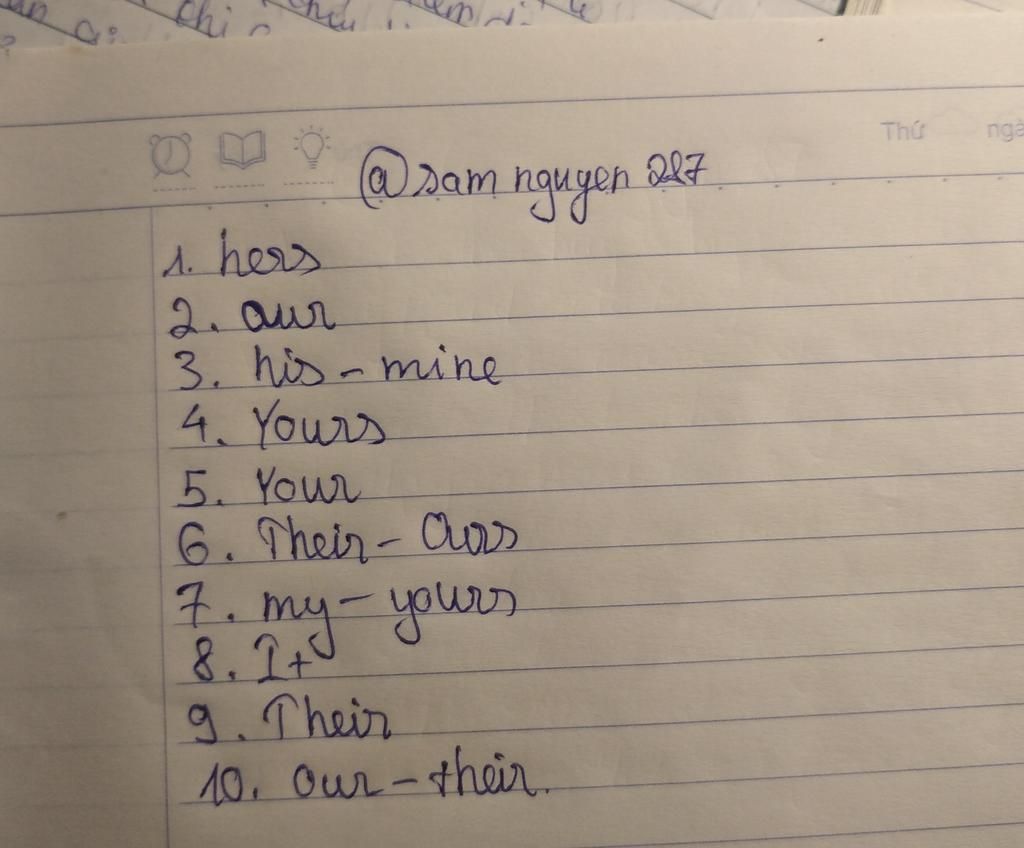 chi
Thứ
@samnguyen287
1. hers
2. our
3. his - mine
4. Yours
5. Your
6. Their - Ours
7. my - yours
8. It
9. Their
10. our - their.